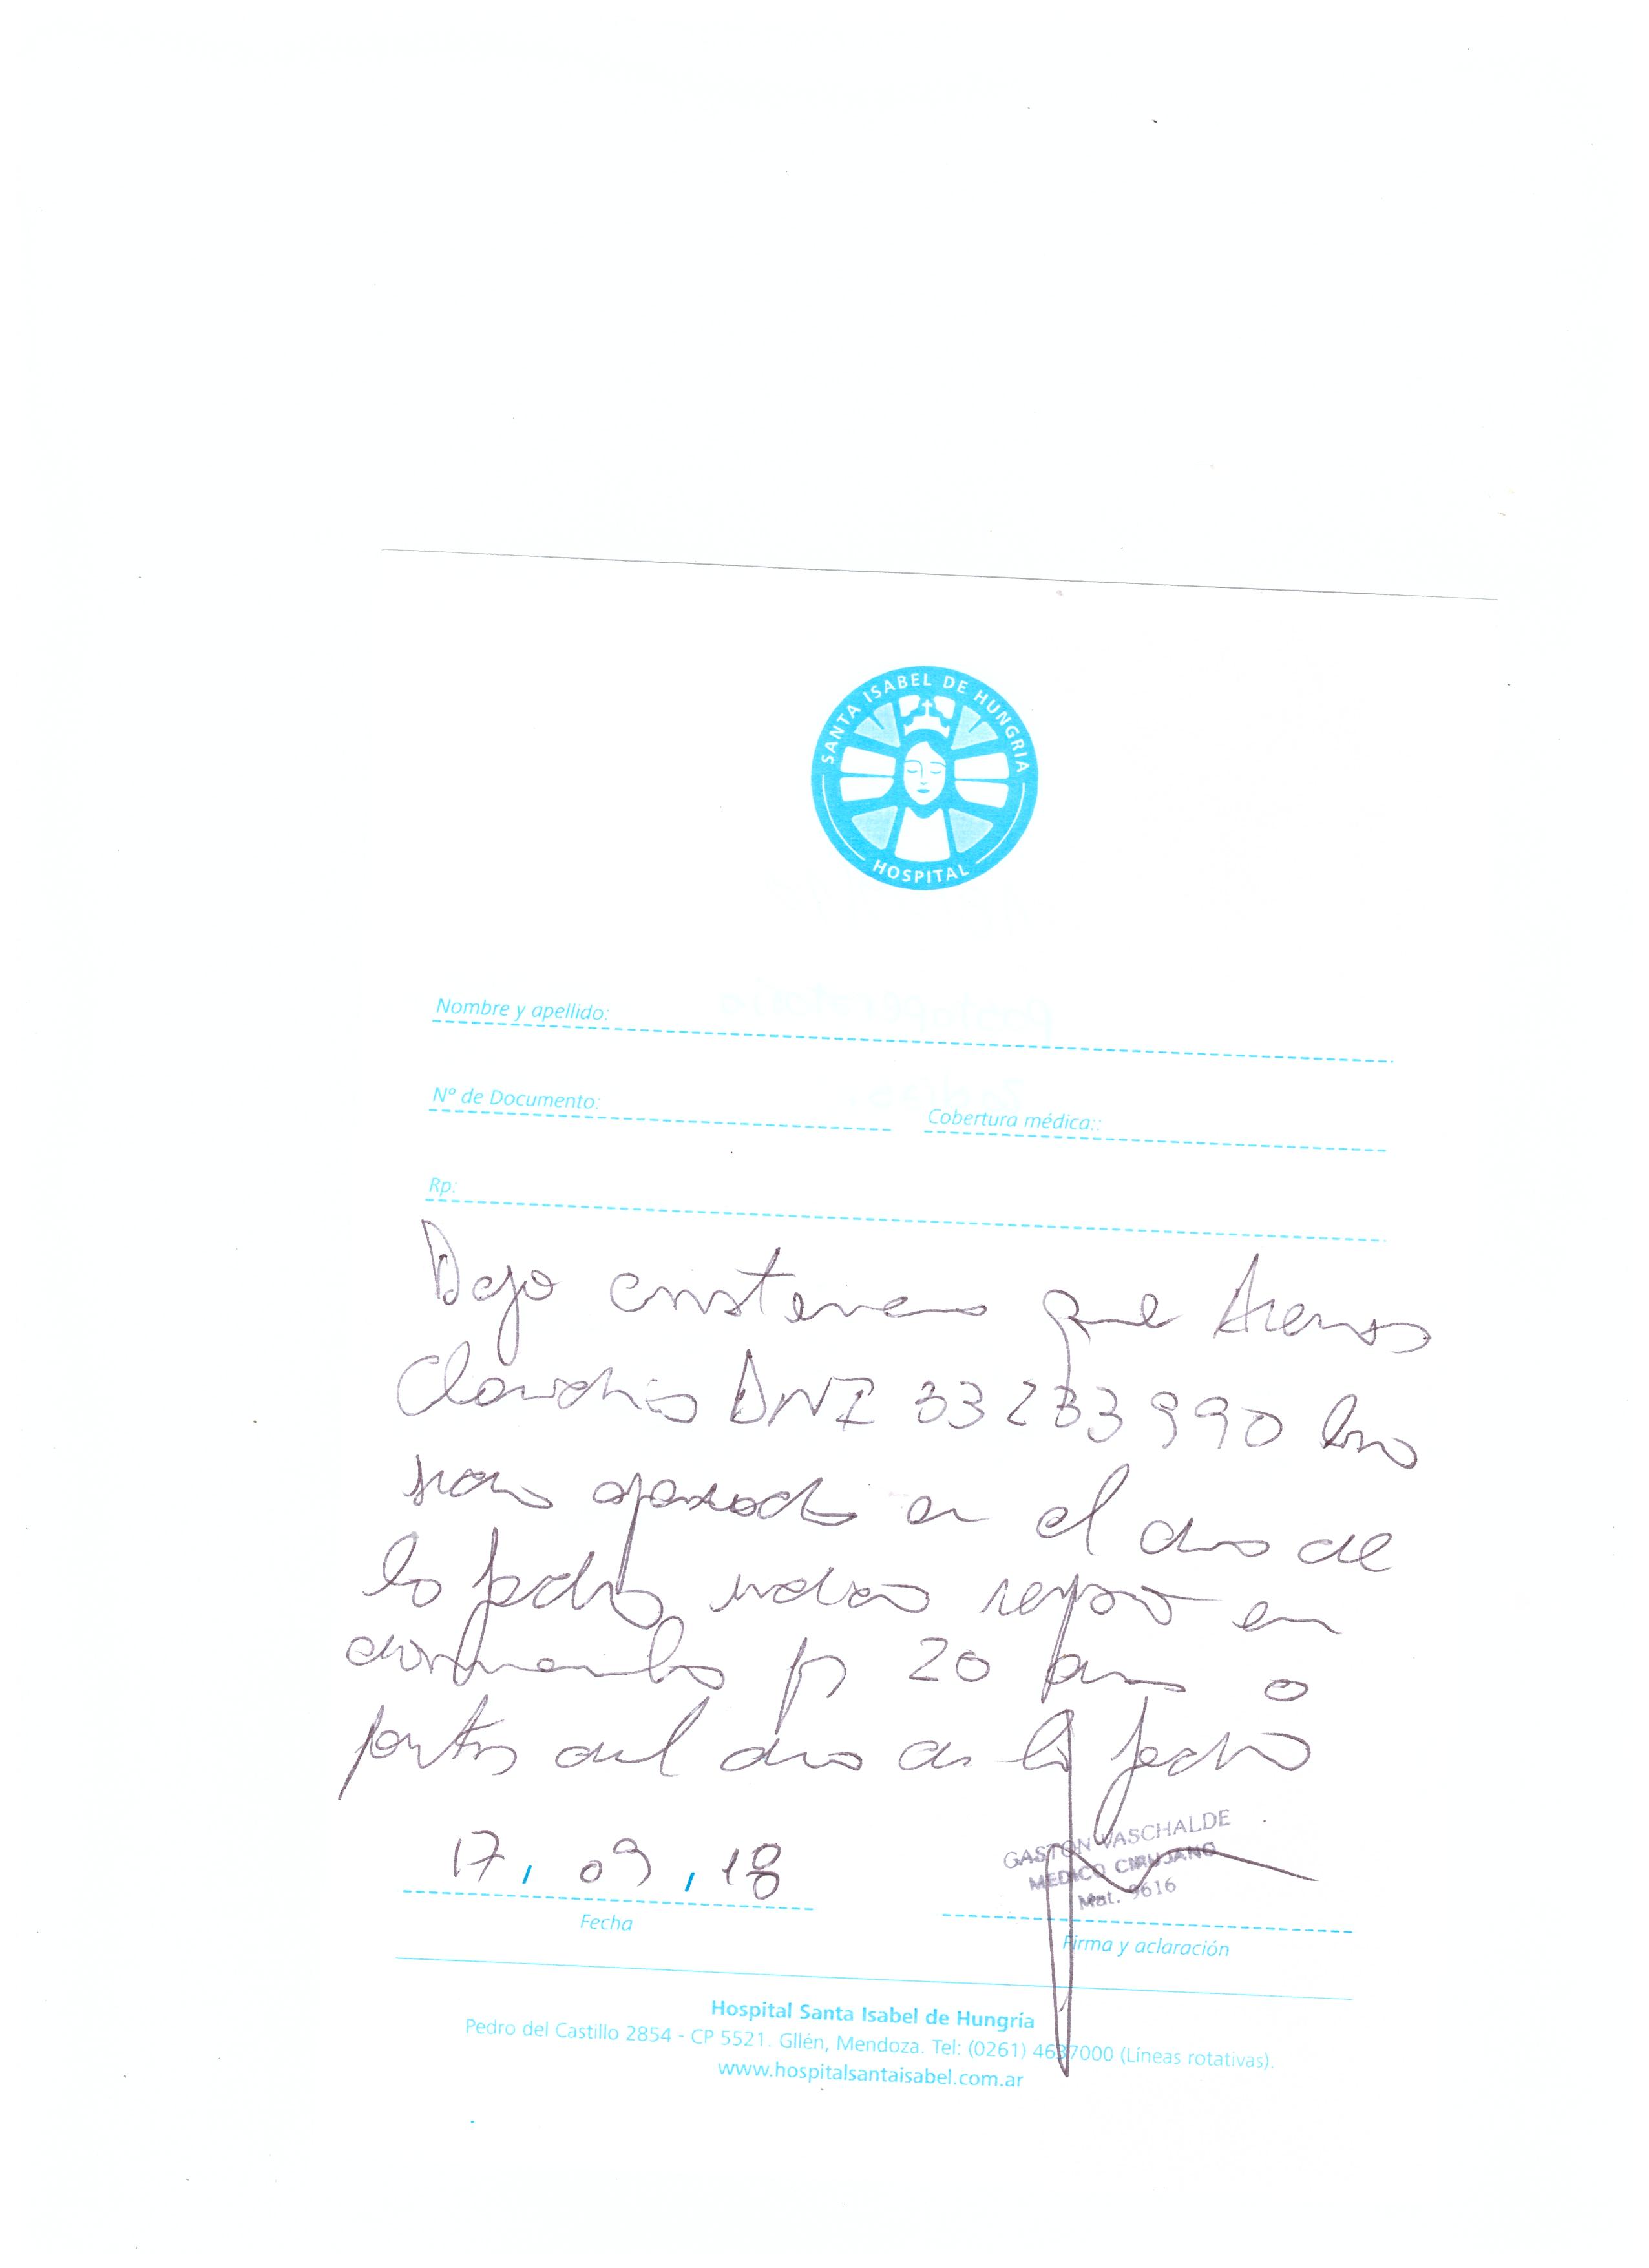 SANTA ISABEL DE HUNGRIA
HOSPITAL
Nombre y apellido:
Nº de Documento:
Cobertura médica::
Rp:
Dejo constancia que
Claudia DNI 33233990
operado en el dia de
la fecha indico reposo en
p 20 dias a
partir del dia de la fecha
17, 09, 18
GASTON VASCHALDE
MEDICO CIRUJANO
Mat. 9616
Fecha
Firma y aclaración
Hospital Santa Isabel de Hungría
Pedro del Castillo 2854 - CP 5521. Gllén, Mendoza. Tel: (0261) 4637000 (Líneas rotativas).
www.hospitalsantaisabel.com.ar